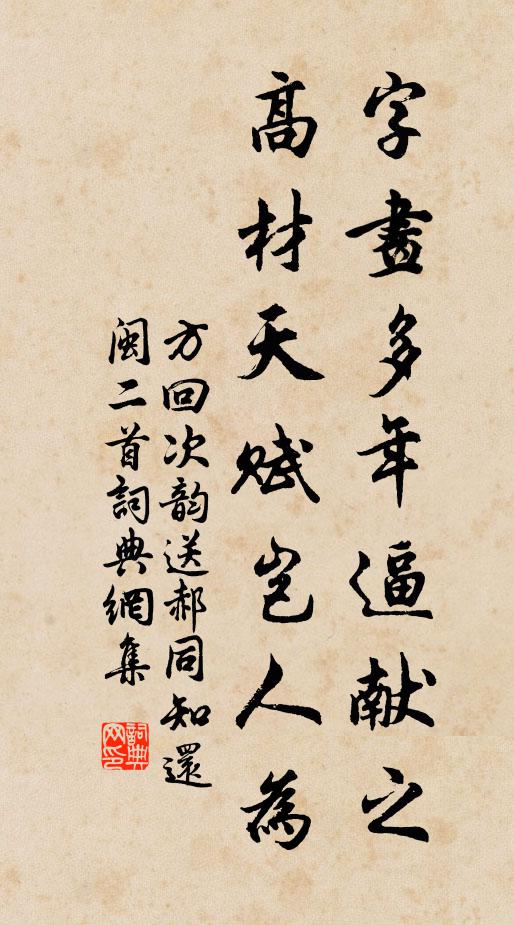 字畫多年逼献之
高材天赋岂人為
方回次韵送郝同知還
閩二首詞典網集
詞典网印